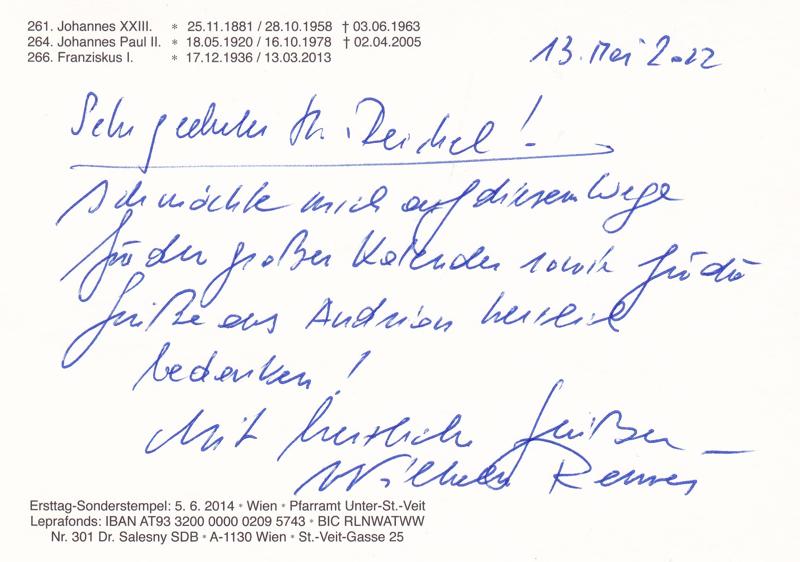 261. Johannes XXIII. * 25.11.1881 / 28.10.1958 † 03.06.1963
264. Johannes Paul II. * 18.05.1920 / 16.10.1978 † 02.04.2005
266. Franziskus I. * 17.12.1936 / 13.03.2013
13. Mai 2022
Sehr geehrter Hr. Deichel!
Ich möchte mich auf diesem Wege
für den großen Kalender sowie für die
Grüße aus Andrian herzlich
bedanken!
Mit herzlichen Grüßen
Wilhelm
Ersttag-Sonderstempel: 5. 6. 2014 • Wien • Pfarramt Unter-St.-Veit
Leprafonds: IBAN AT93 3200 0000 0209 5743 • BIC RLNWATWW
Nr. 301 Dr. Salesny SDB • A-1130 Wien • St.-Veit-Gasse 25